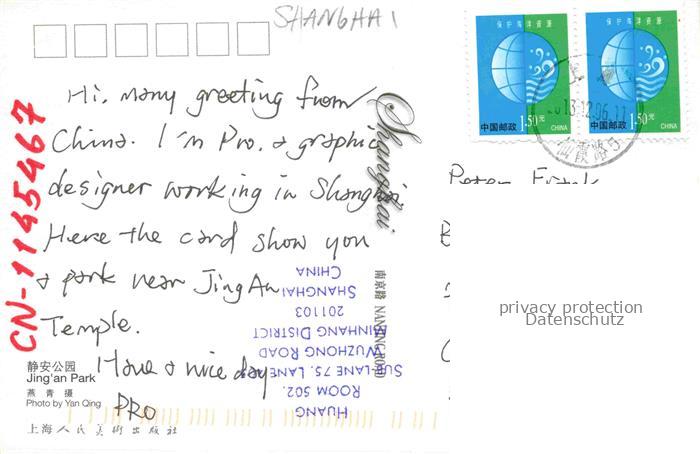 SHANGHAI
保护海洋资源
保护海洋资源
中国邮政 1.50元 CHINA
中国邮政 1.50元 CHINA
2013.12.06.11
仙霞路
CN-1145467
Hi, many greeting from
China. I'm Pro. a graphic
designer working in Shanghai
Here the card show you
a park near JingAn
Temple.
Have a nice day
PRO
Shanghai
南京路 NANJING ROAD
HUANG
ROOM 502.
SUB-LANE 75. LANE
WUZHONG ROAD
MINHANG DISTRICT
201103
SHANGHAI
CHINA
静安公园
Jing'an Park
燕青 摄
Photo by Yan Qing
上海人民美術出版社
Peter
privacy protection
Datenschutz